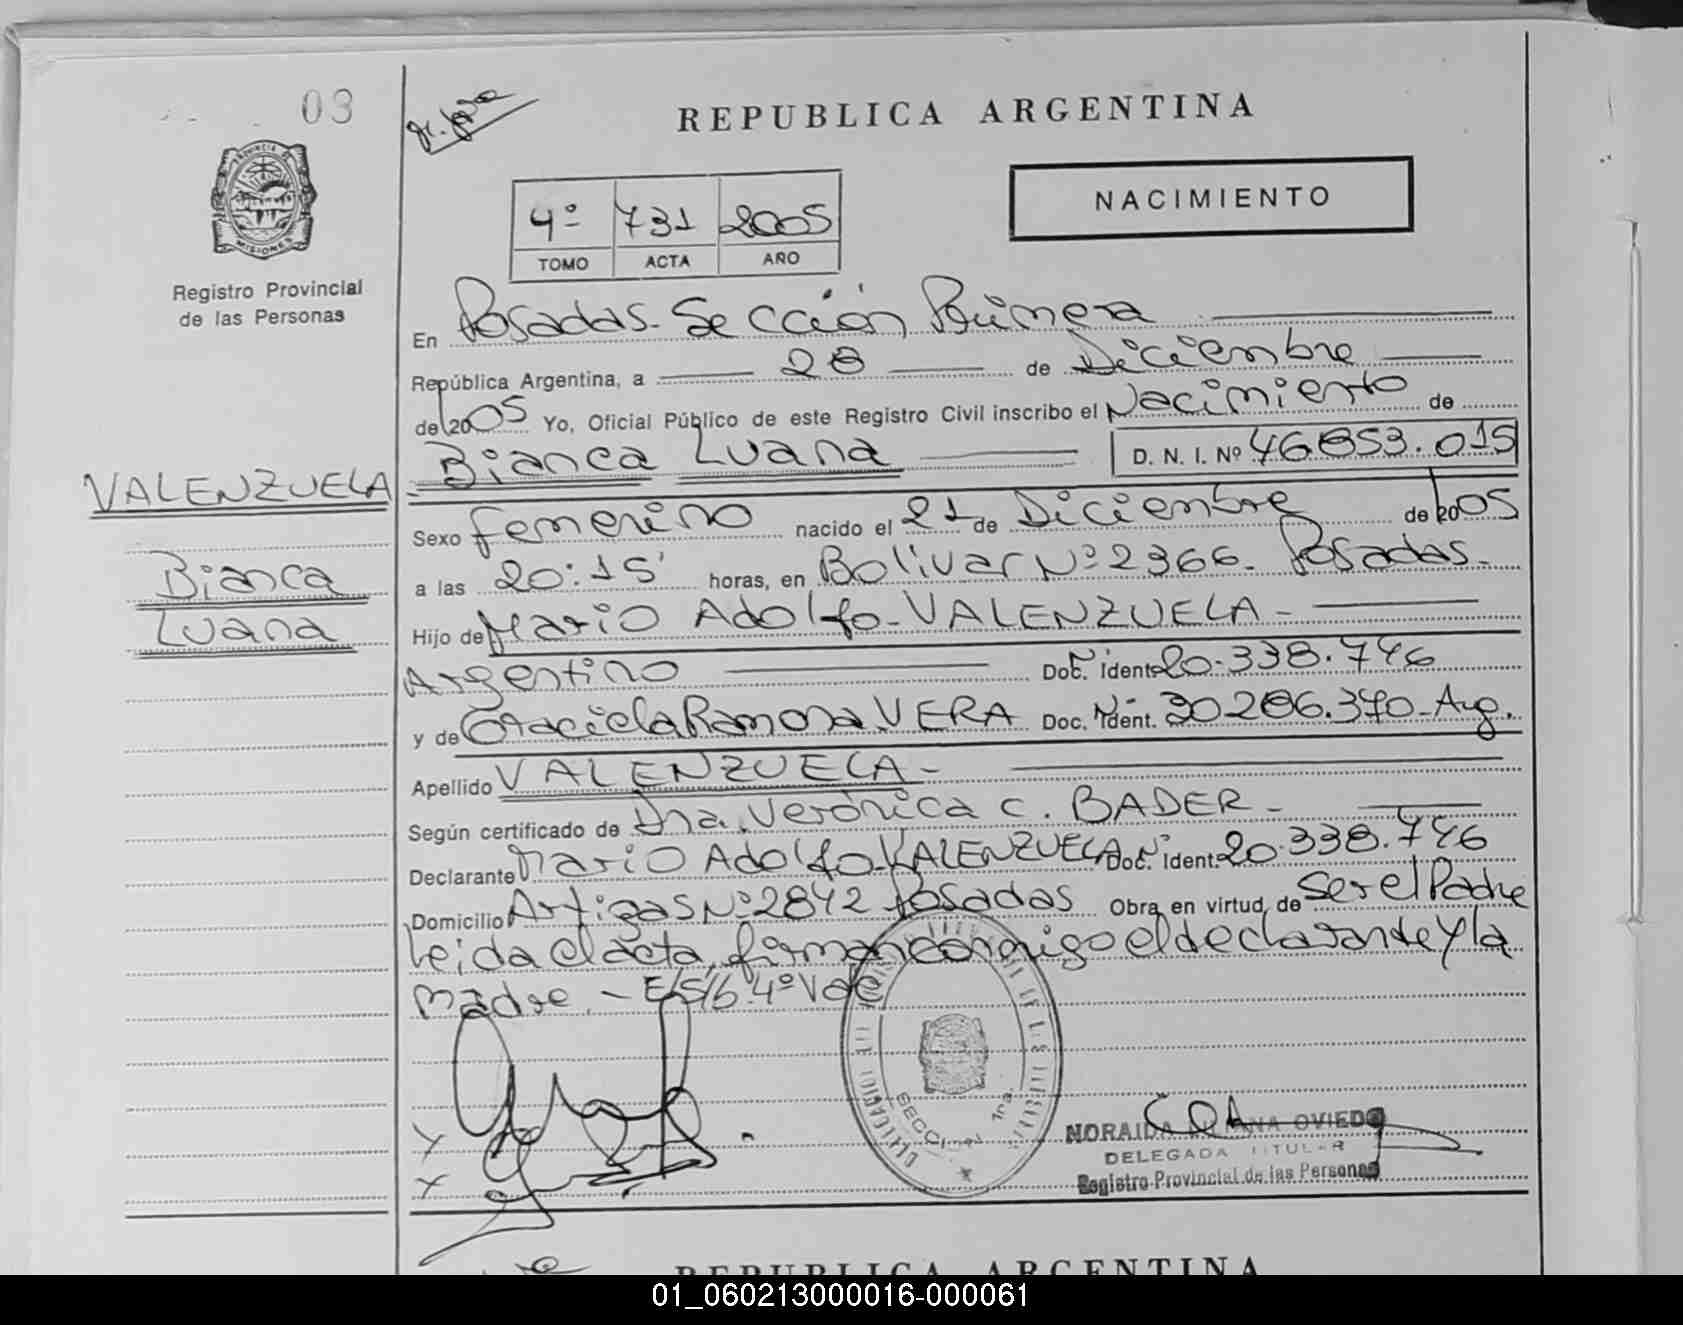 03
REPUBLICA ARGENTINA
PROVINCIA DE
MISIONES
Registro Provincial
de las Personas
4º 731 2005
TOMO ACTA AÑO
NACIMIENTO
En Posadas - Sección Primera
República Argentina, a 28 de Diciembre
de 2005 Yo, Oficial Público de este Registro Civil inscribo el Nacimiento de
Bianca Luana D. N. I. Nº 46.853.015
VALENZUELA
Bianca
Luana
Sexo femenino nacido el 21 de Diciembre de 2005
a las 20:15' horas, en Bolivar Nº 2366 - Posadas -
Hijo de Mario Adolfo - VALENZUELA -
Argentino Doc. Ident. 20.338.746
y de Graciela Ramona VERA Doc. Ident. 30.286.370 - Arg.
Apellido VALENZUELA -
Según certificado de Dra. Verónica C. BADER -
Declarante Mario Adolfo - VALENZUELA Doc. Ident. 20.338.746
Domicilio Artigas Nº 2842 Posadas Obra en virtud de Ser el Padre
Leida el acta, firman conmigo el declarante y la
Madre. - E/S/6 4º Vale
SECCION 1ra
NORAIDA OVIEDO
DELEGADA TITULAR
Registro Provincial de las Personas
REPUBLICA ARGENTINA
01_060213000016-000061